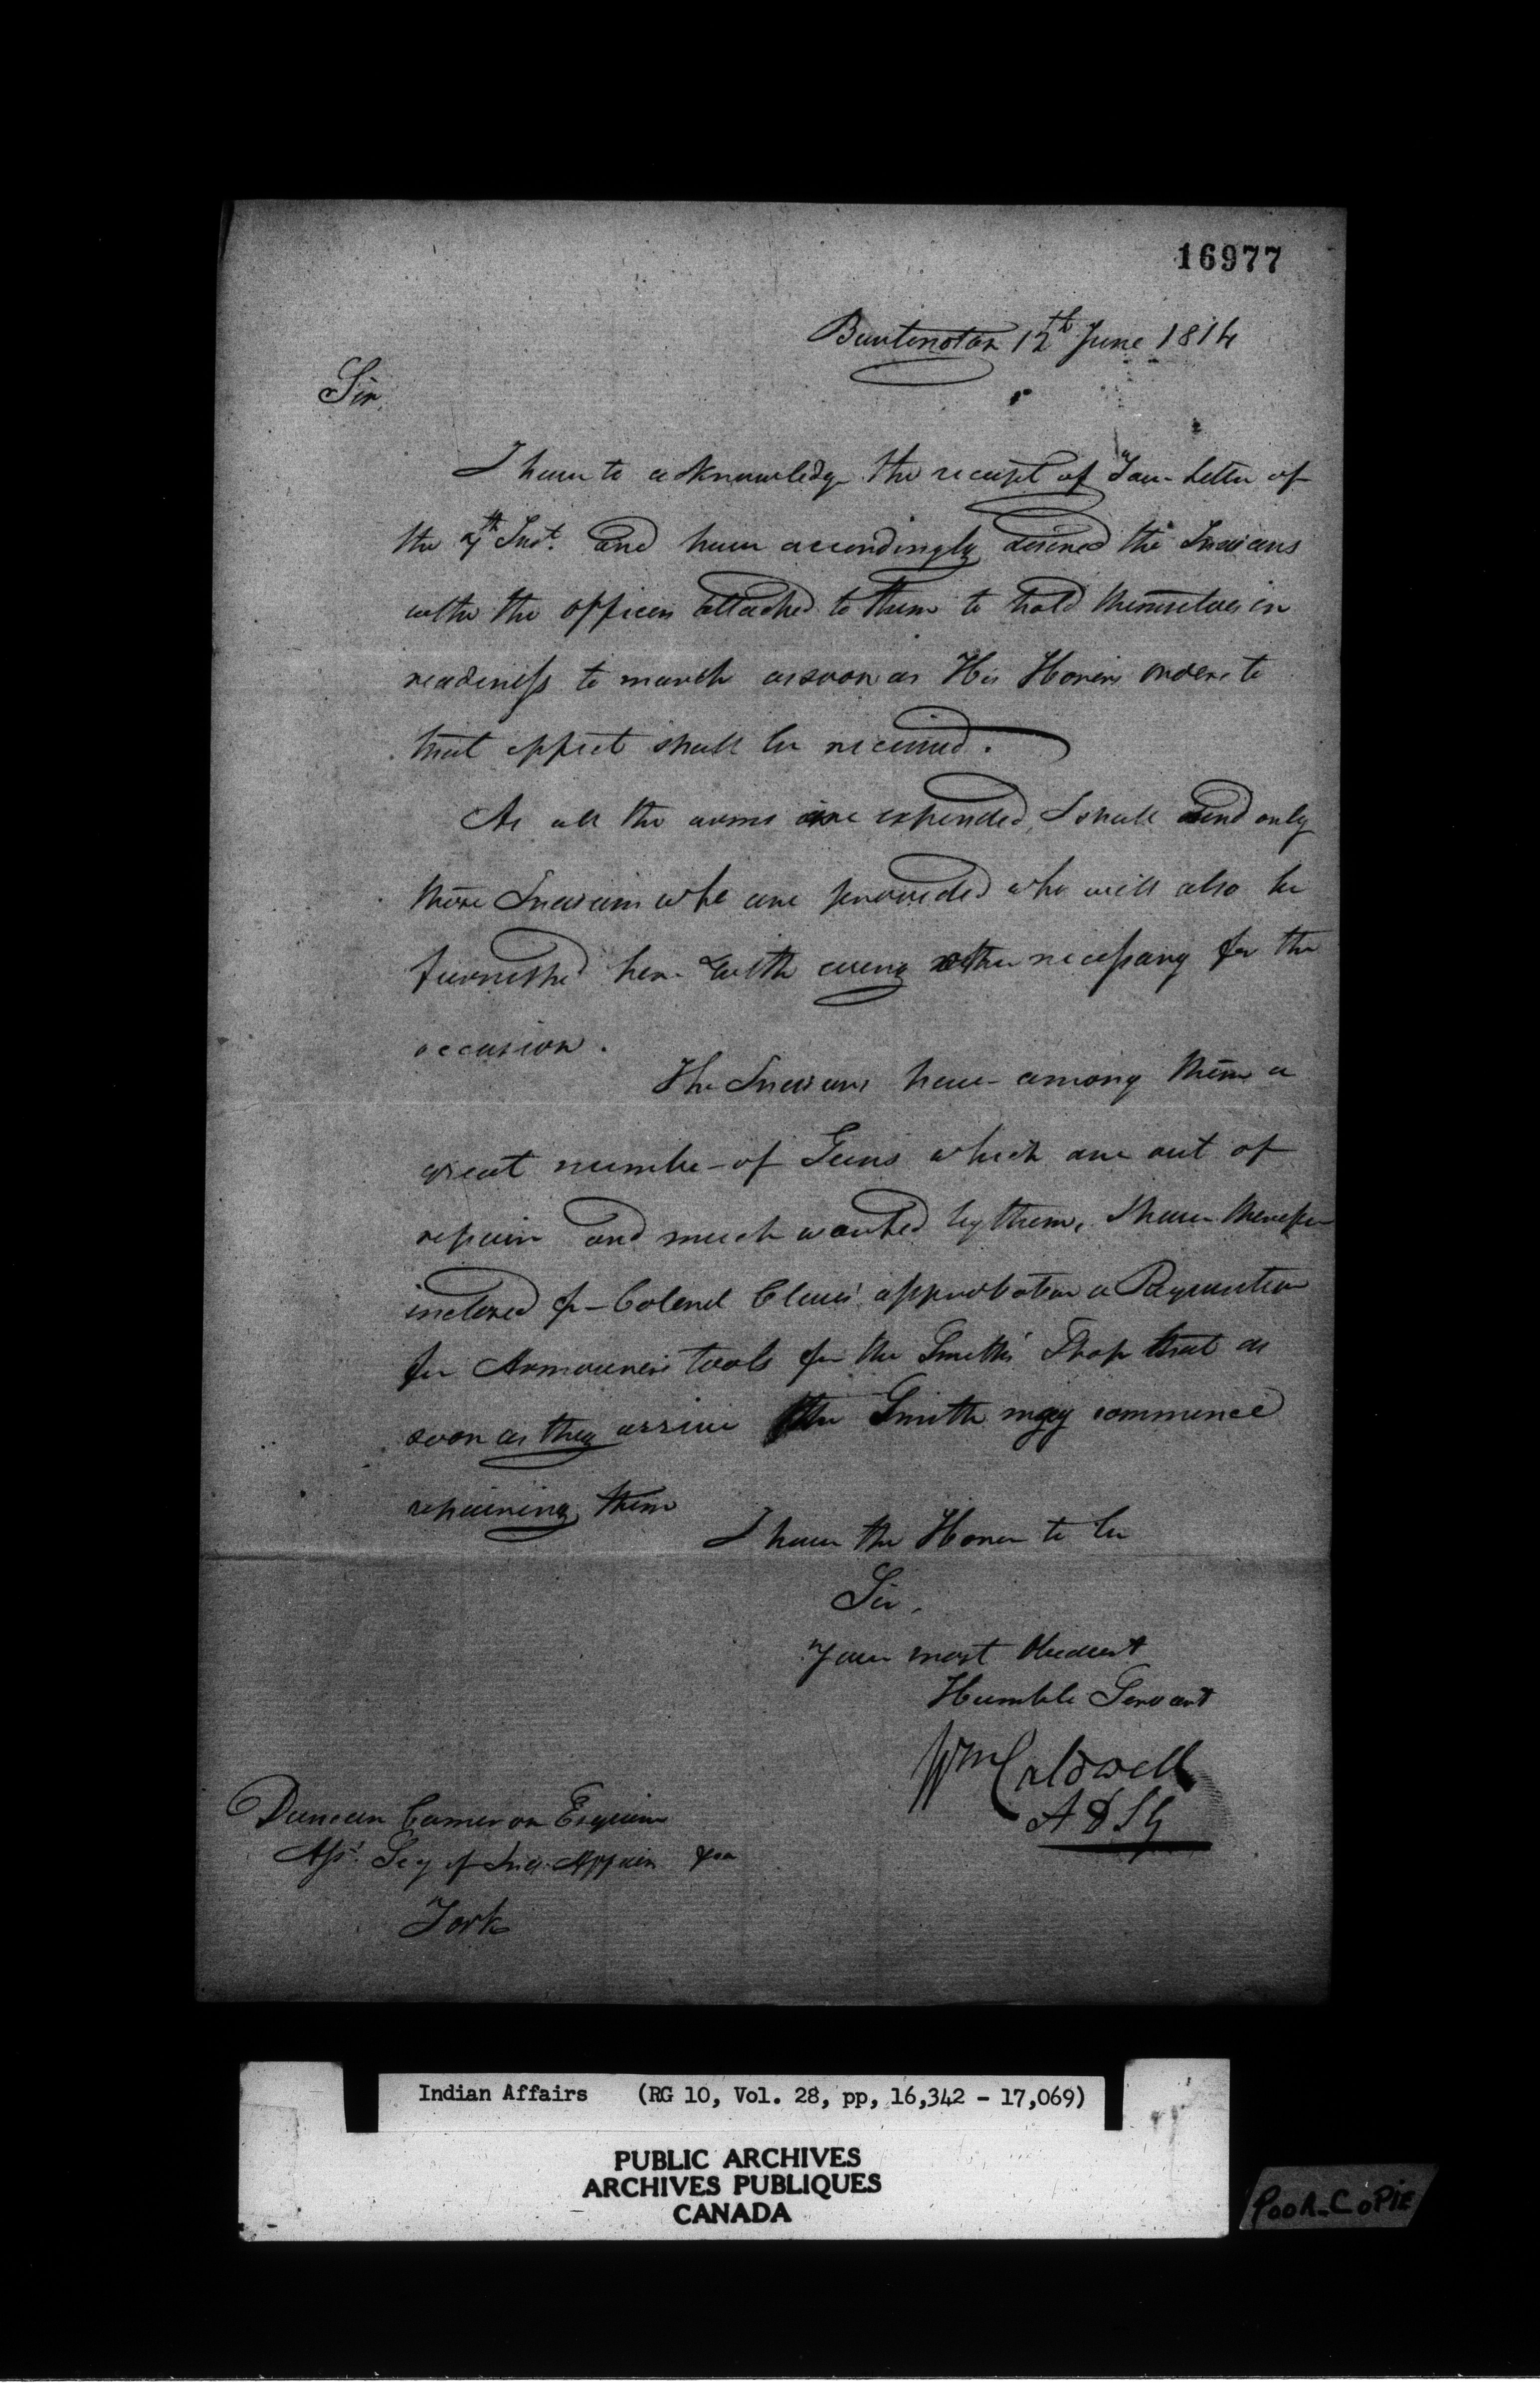 16977
Burlington 12th June 1814
Sir,
I have to acknowledge the receipt of Your Letter of
the 7th Inst. and have accordingly desired the Indians
with the officers attached to them to hold themselves in
readiness to march as soon as His Honors orders to
that effect shall be received.
As all the arms are expended, I shall send only
those Indians who are provided who will also be
furnished here with every other necessary for the
occasion.
The Indians have among them a
great number of Guns which are out of
repair and much wanted by them, I have therefore
inclosed for Colonel Claus' approbation a Requisition
for Armourers tools for the Smith's Shop that as
soon as they arrive the Smith may commence
repairing them
I have the Honor to be
Sir,
Your most Obedient
Humble Servant
Wm Caldwell
A D S G
Duncan Cameron Esquire
Asst. Secy of Ind. Affairs &ca
York
Indian Affairs (RG 10, Vol. 28, pp, 16,342 - 17,069)
PUBLIC ARCHIVES
ARCHIVES PUBLIQUES
CANADA
POOR COPIE